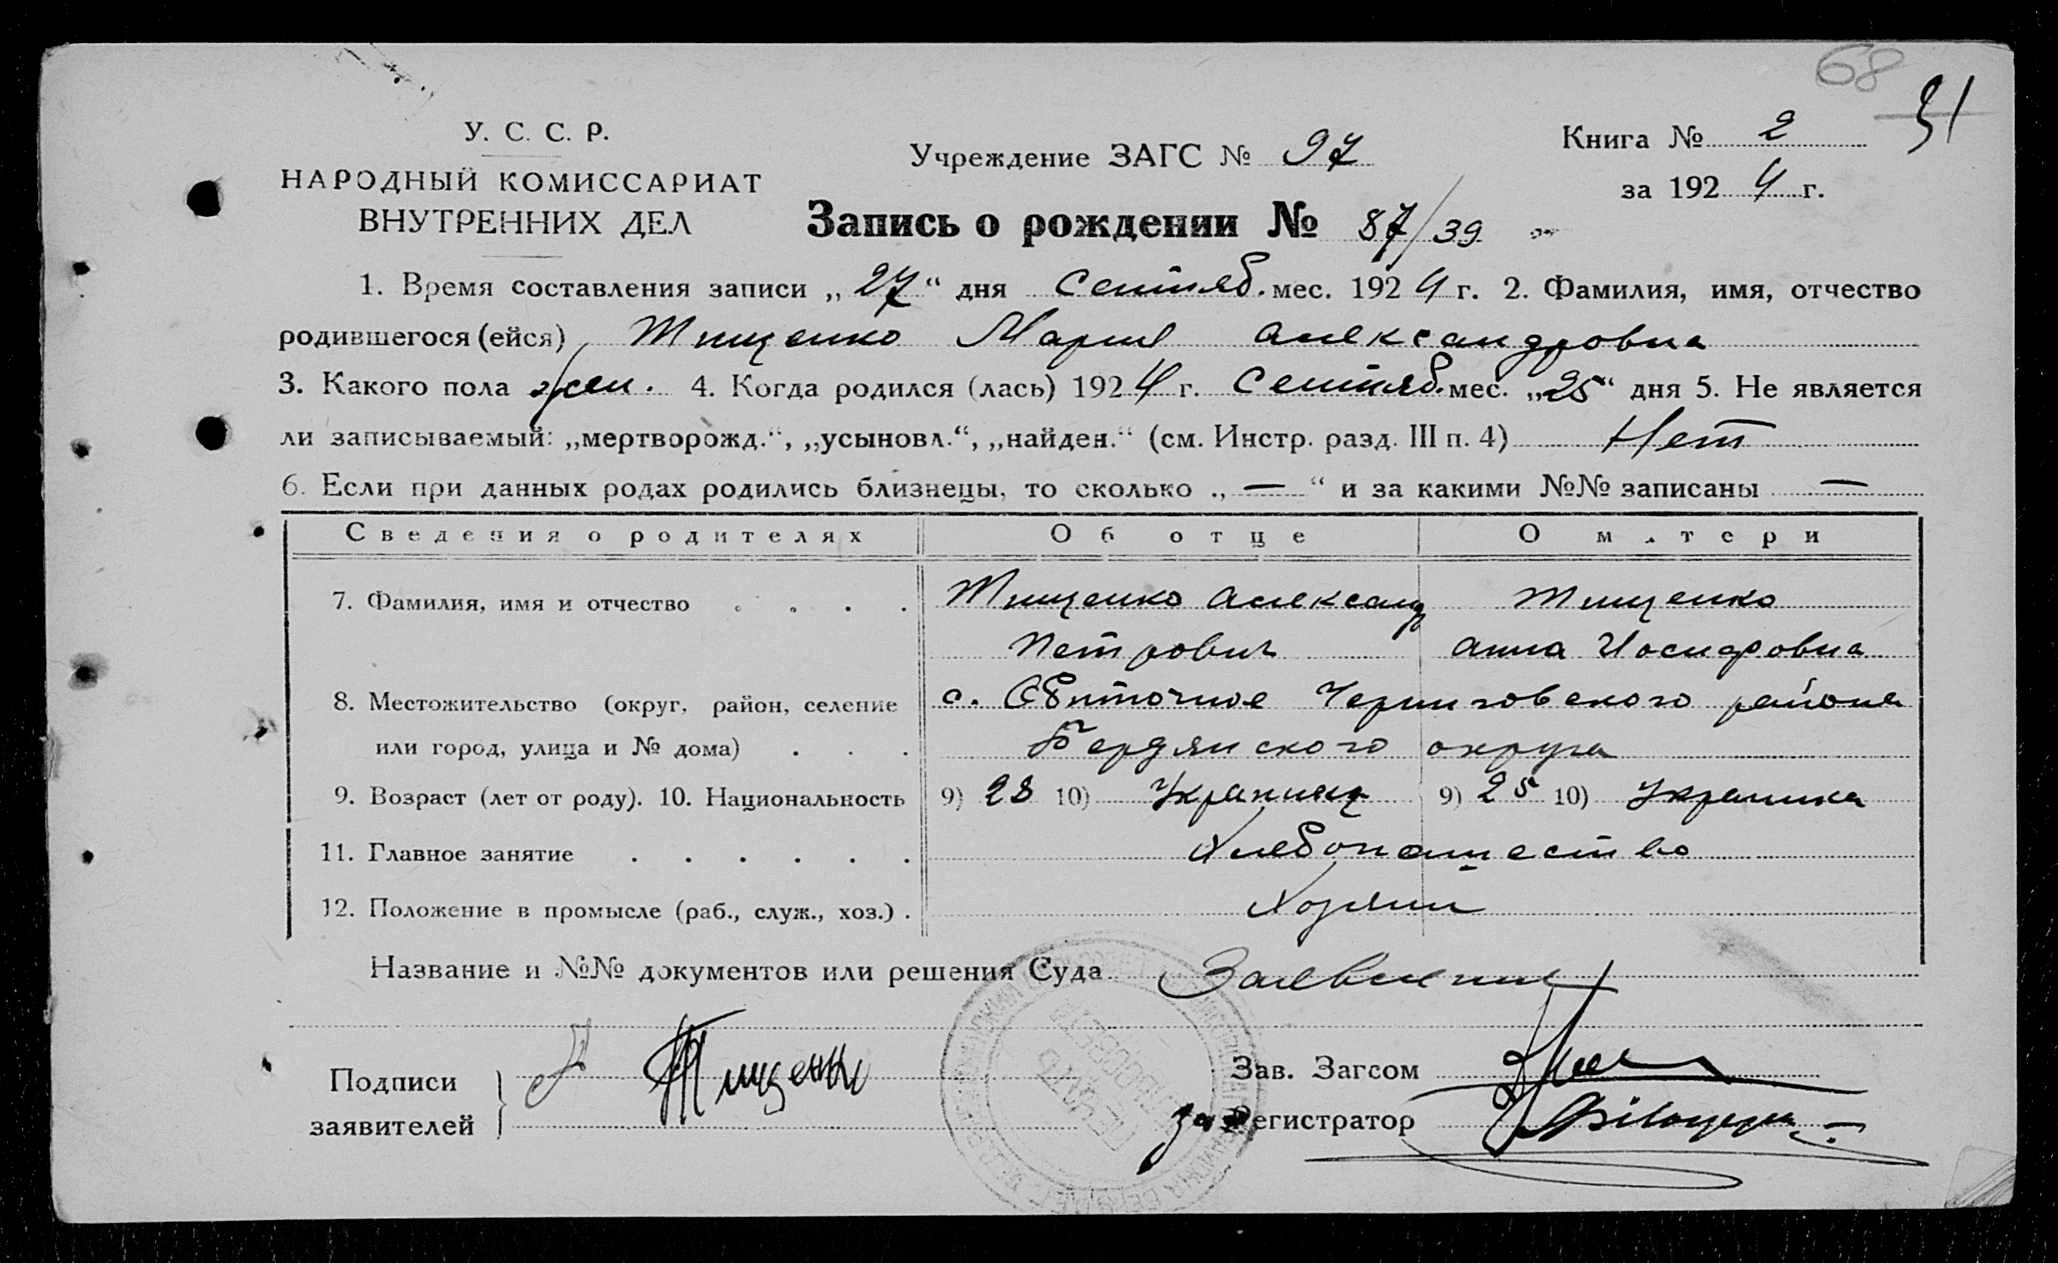 68
31
У. С. С. Р.
НАРОДНЫЙ КОМИССАРИАТ
ВНУТРЕННИХ ДЕЛ
Учреждение ЗАГС № 97
Книга № 2
за 1924 г.
Запись о рождении № 87/39
1. Время составления записи „27“ дня Сентяб. мес. 1924 г. 2. Фамилия, имя, отчество
родившегося (ейся) Тищенко Мария Александровна
3. Какого пола жен. 4. Когда родился (лась) 1924 г. Сентяб. мес. „25“ дня 5. Не является
ли записываемый: „мертворожд.“, „усыновл.“, „найден.“ (см. Инстр. разд. III п. 4) Нет
6. Если при данных родах родились близнецы, то сколько „—“ и за какими №№ записаны —
Сведения о родителях Об отце О матери
7. Фамилия, имя и отчество . . . . Тищенко Александ Тищенко
Петрович Анна Иосифовна
8. Местожительство (округ, район, селение с. Обиточное Черниговского района
или город, улица и № дома) . . . Бердянского округа
9. Возраст (лет от роду). 10. Национальность 9) 28 10) Украинец 9) 25 10) Украинка
11. Главное занятие . . . . . . Хлебопашество
12. Положение в промысле (раб., служ., хоз.) . Хозяин
Название и №№ документов или решения Суда Заявление
Подписи
заявителей
Тищенко
Зав. Загсом
за Регистратор